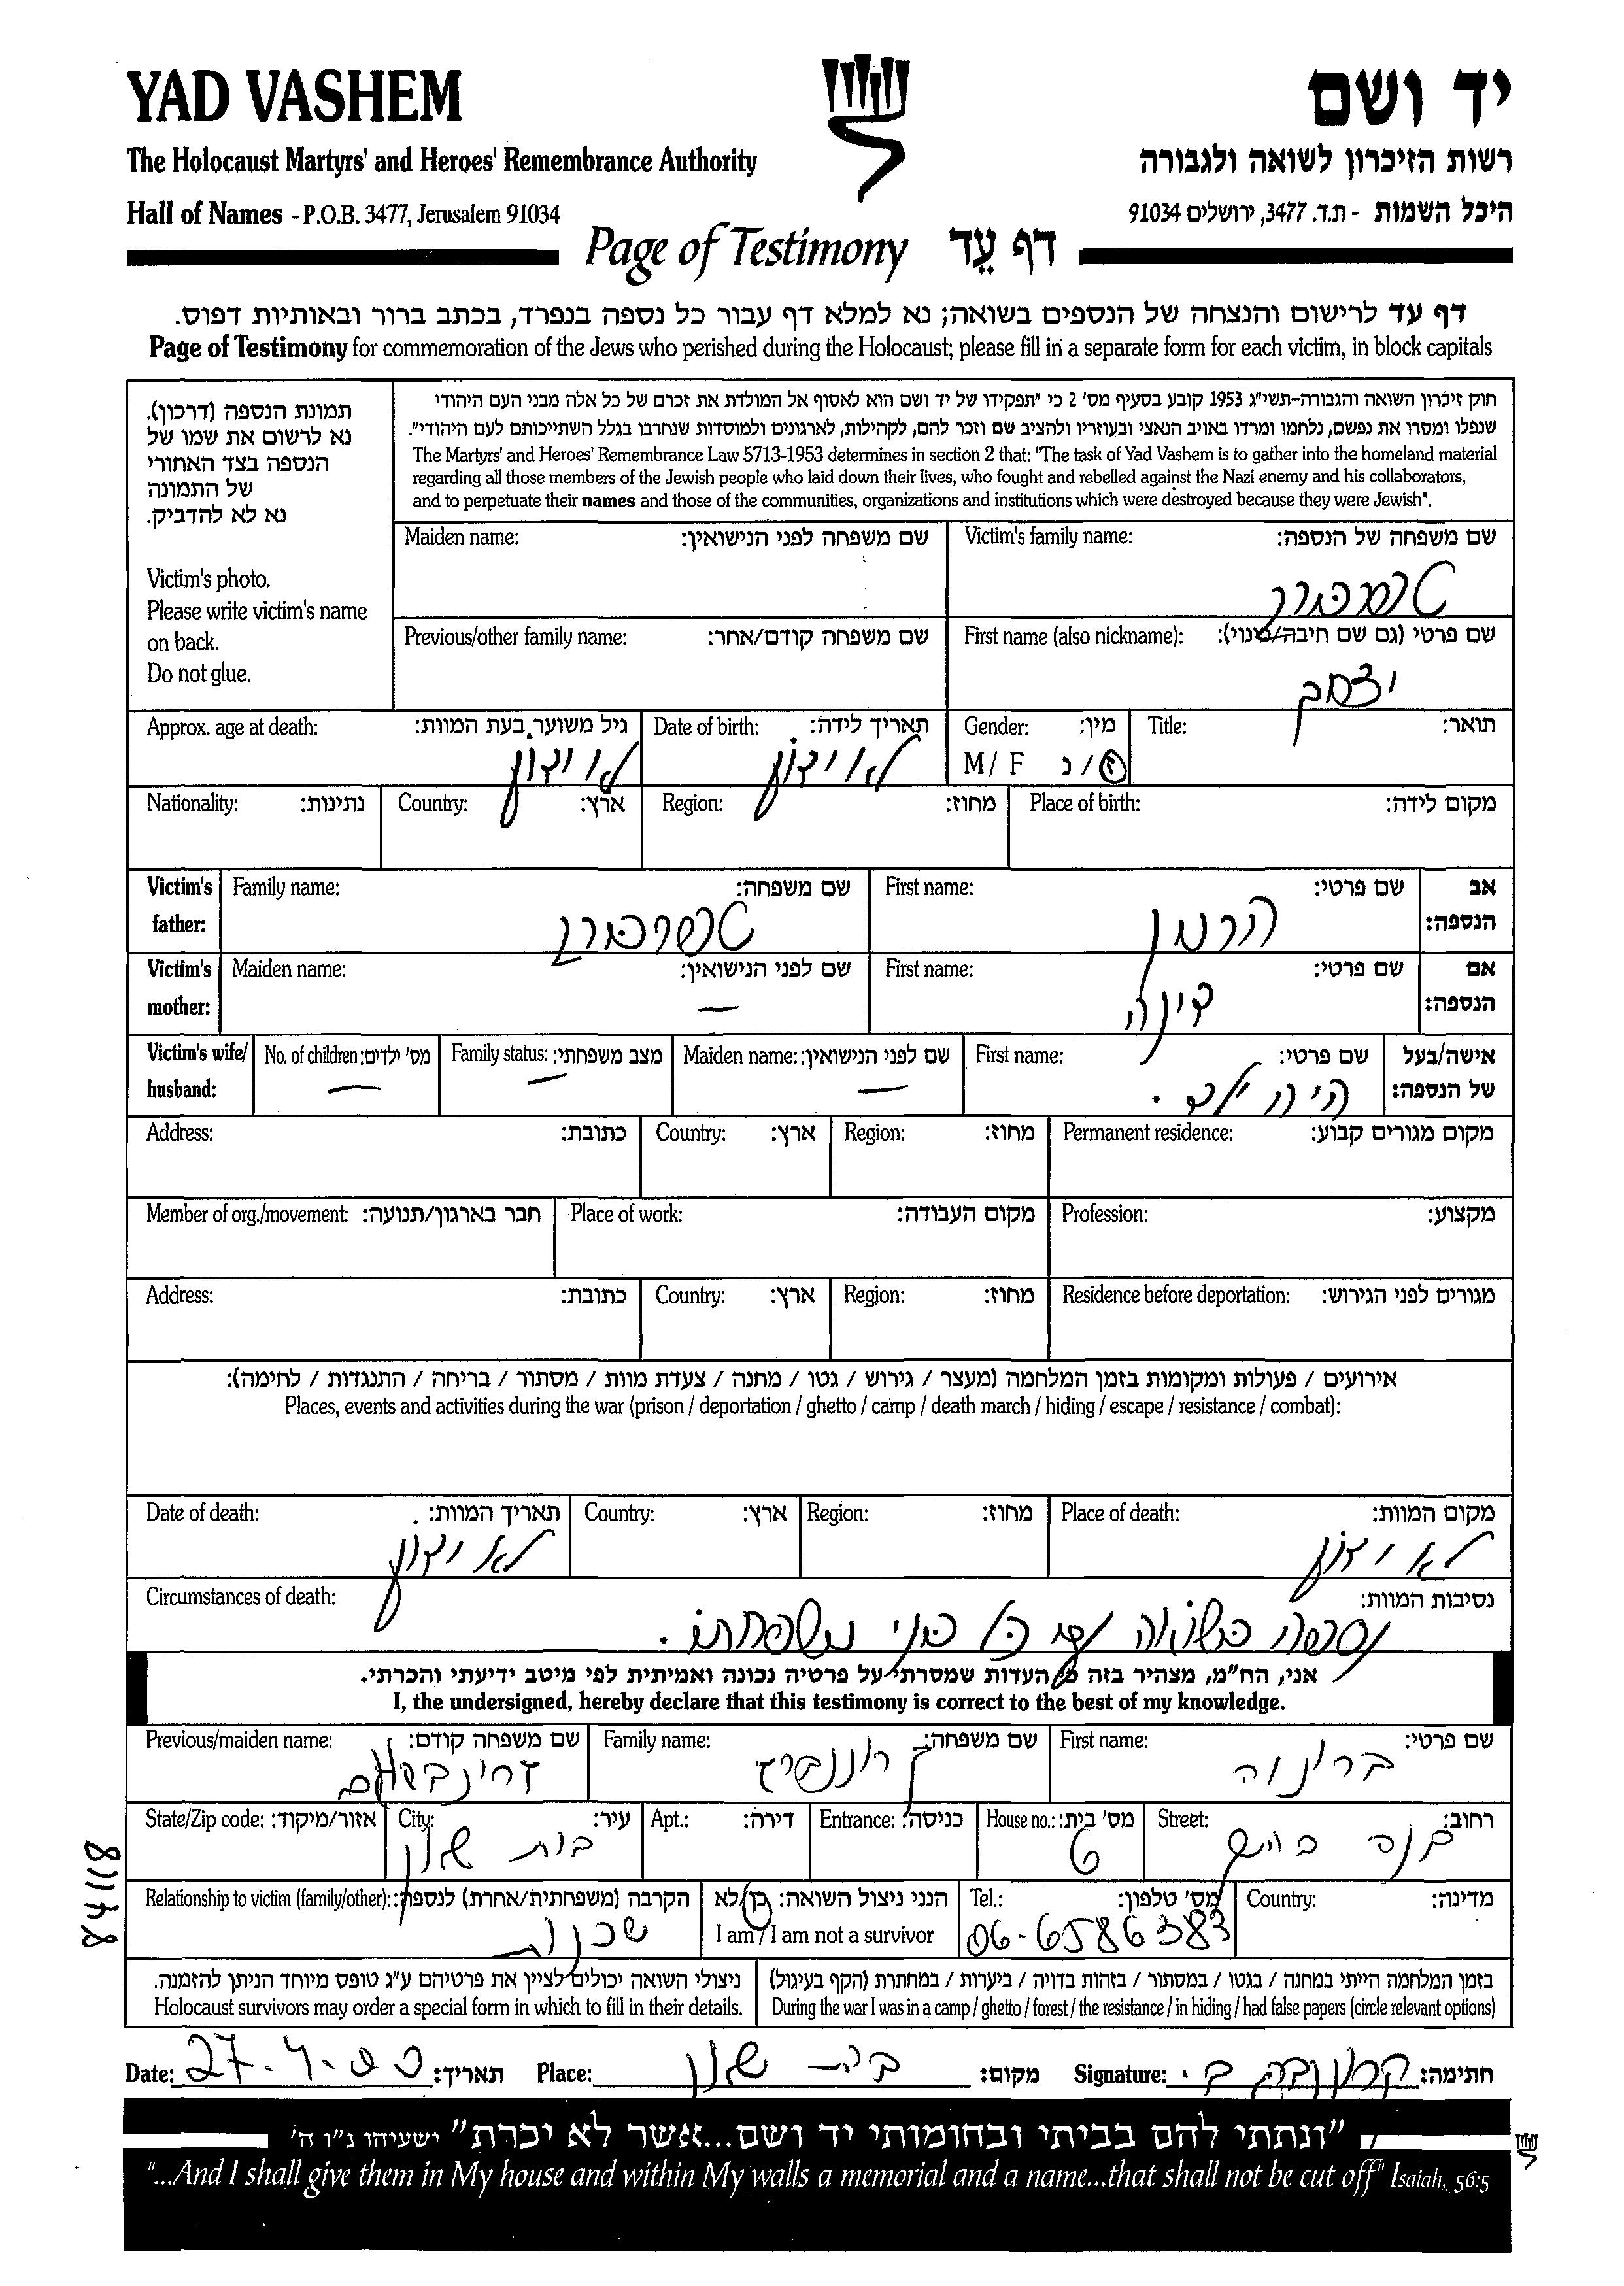 YAD VASHEM
יד ושם
The Holocaust Martyrs' and Heroes' Remembrance Authority
רשות הזיכרון לשואה ולגבורה
Hall of Names - P.O.B. 3477, Jerusalem 91034
היכל השמות - ת.ד. 3477, ירושלים 91034
Page of Testimony דף עֵד
דף עד לרישום והנצחה של הנספים בשואה; נא למלא דף עבור כל נספה בנפרד, בכתב ברור ובאותיות דפוס.
Page of Testimony for commemoration of the Jews who perished during the Holocaust; please fill in a separate form for each victim, in block capitals
תמונת הנספה (דרכון).
נא לרשום את שמו של
הנספה בצד האחורי
של התמונה
נא לא להדביק.
Victim's photo.
Please write victim's name
on back.
Do not glue.
חוק זיכרון השואה והגבורה-תשי"ג 1953 קובע בסעיף מס' 2 כי "תפקידו של יד ושם הוא לאסוף אל המולדת את זכרם של כל אלה מבני העם היהודי
שנפלו ומסרו את נפשם, נלחמו ומרדו באויב הנאצי ובעוזריו ולהציב שם וזכר להם, לקהילות, לארגונים ולמוסדות שנחרבו בגלל השתייכותם לעם היהודי".
The Martyrs' and Heroes' Remembrance Law 5713-1953 determines in section 2 that: "The task of Yad Vashem is to gather into the homeland material
regarding all those members of the Jewish people who laid down their lives, who fought and rebelled against the Nazi enemy and his collaborators,
and to perpetuate their names and those of the communities, organizations and institutions which were destroyed because they were Jewish".
Victim's family name: שם משפחה של הנספה:
Maiden name: שם משפחה לפני הנישואין:
First name (also nickname): שם פרטי (גם שם חיבה/כינוי):
יצחק
Previous/other family name: שם משפחה קודם/אחר:
Title: תואר:
Gender: מין:
M / F ז / נ
Date of birth: תאריך לידה:
לא ידוע
Approx. age at death: גיל משוער בעת המוות:
לא ידוע
Place of birth: מקום לידה:
Region: מחוז:
Country: ארץ:
Nationality: נתינות:
Victim's father: אב הנספה:
First name: שם פרטי:
הרמן
Family name: שם משפחה:
Victim's mother: אם הנספה:
First name: שם פרטי:
דינה
Maiden name: שם לפני הנישואין:
—
Victim's wife/husband: אישה/בעל של הנספה:
First name: שם פרטי:
היה ילד.
Maiden name: שם לפני הנישואין:
—
Family status: מצב משפחתי:
—
No. of children: מס' ילדים:
—
Permanent residence: מקום מגורים קבוע:
Region: מחוז:
Country: ארץ:
Address: כתובת:
Profession: מקצוע:
Place of work: מקום העבודה:
Member of org./movement: חבר בארגון/תנועה:
Residence before deportation: מגורים לפני הגירוש:
Region: מחוז:
Country: ארץ:
Address: כתובת:
אירועים / פעולות ומקומות בזמן המלחמה (מעצר / גירוש / גטו / מחנה / צעדת מוות / מסתור / בריחה / התנגדות / לחימה):
Places, events and activities during the war (prison / deportation / ghetto / camp / death march / hiding / escape / resistance / combat):
Place of death: מקום המוות:
לא ידוע
Region: מחוז:
Country: ארץ:
Date of death: תאריך המוות:
לא ידוע
Circumstances of death: נסיבות המוות:
נספה בשואה עם כל בני משפחתו.
אני, הח"מ, מצהיר בזה כי העדות שמסרתי על פרטיה נכונה ואמיתית לפי מיטב ידיעתי והכרתי.
I, the undersigned, hereby declare that this testimony is correct to the best of my knowledge.
First name: שם פרטי:
Family name: שם משפחה:
Previous/maiden name: שם משפחה קודם:
Street: רחוב:
House no.: מס' בית:
6
Entrance: כניסה:
Apt.: דירה:
City: עיר:
בית שאן
State/Zip code: אזור/מיקוד:
Country: מדינה:
Tel.: מס' טלפון:
06-6586383
הנני ניצול השואה: כן/לא
I am / I am not a survivor
Relationship to victim (family/other): הקרבה (משפחתית/אחרת) לנספה:
שכנות
בזמן המלחמה הייתי במחנה / בגטו / במסתור / בזהות בדויה / ביערות / במחתרת (הקף בעיגול)
During the war I was in a camp / ghetto / forest / the resistance / in hiding / had false papers (circle relevant options)
ניצולי השואה יכולים לציין את פרטיהם ע"ג טופס מיוחד הניתן להזמנה.
Holocaust survivors may order a special form in which to fill in their details.
Signature: חתימה:
Place: בית שאן מקום:
Date: תאריך:
"ונתתי להם בביתי ובחומותי יד ושם...אשר לא יכרת" ישעיהו נ"ו ה'
"...And I shall give them in My house and within My walls a memorial and a name...that shall not be cut off" Isaiah, 56:5